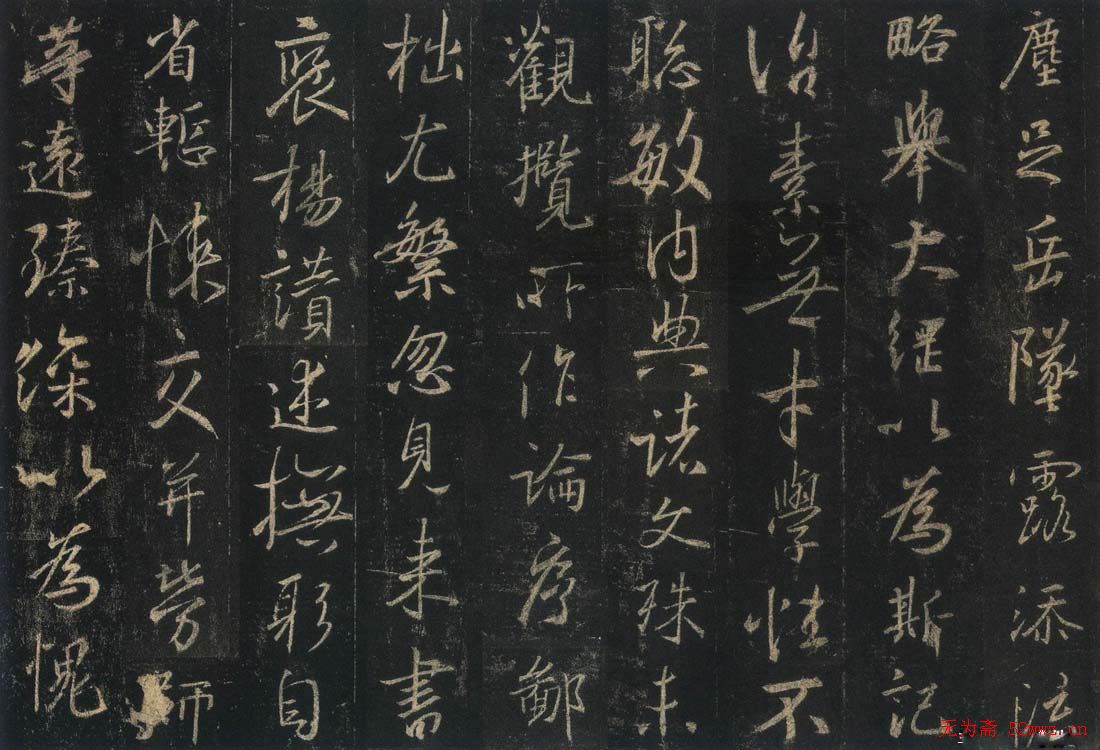 塵足岳墜露添流
略舉大綱以為斯記
治素無才學性不
聡敏內典諸文殊未
觀攬所作論序鄙
拙尤繁忽見来書
褒揚讃述撫躬自
省慙悚交并勞師
等遠臻深以為愧
无为斋 52wwz.cn